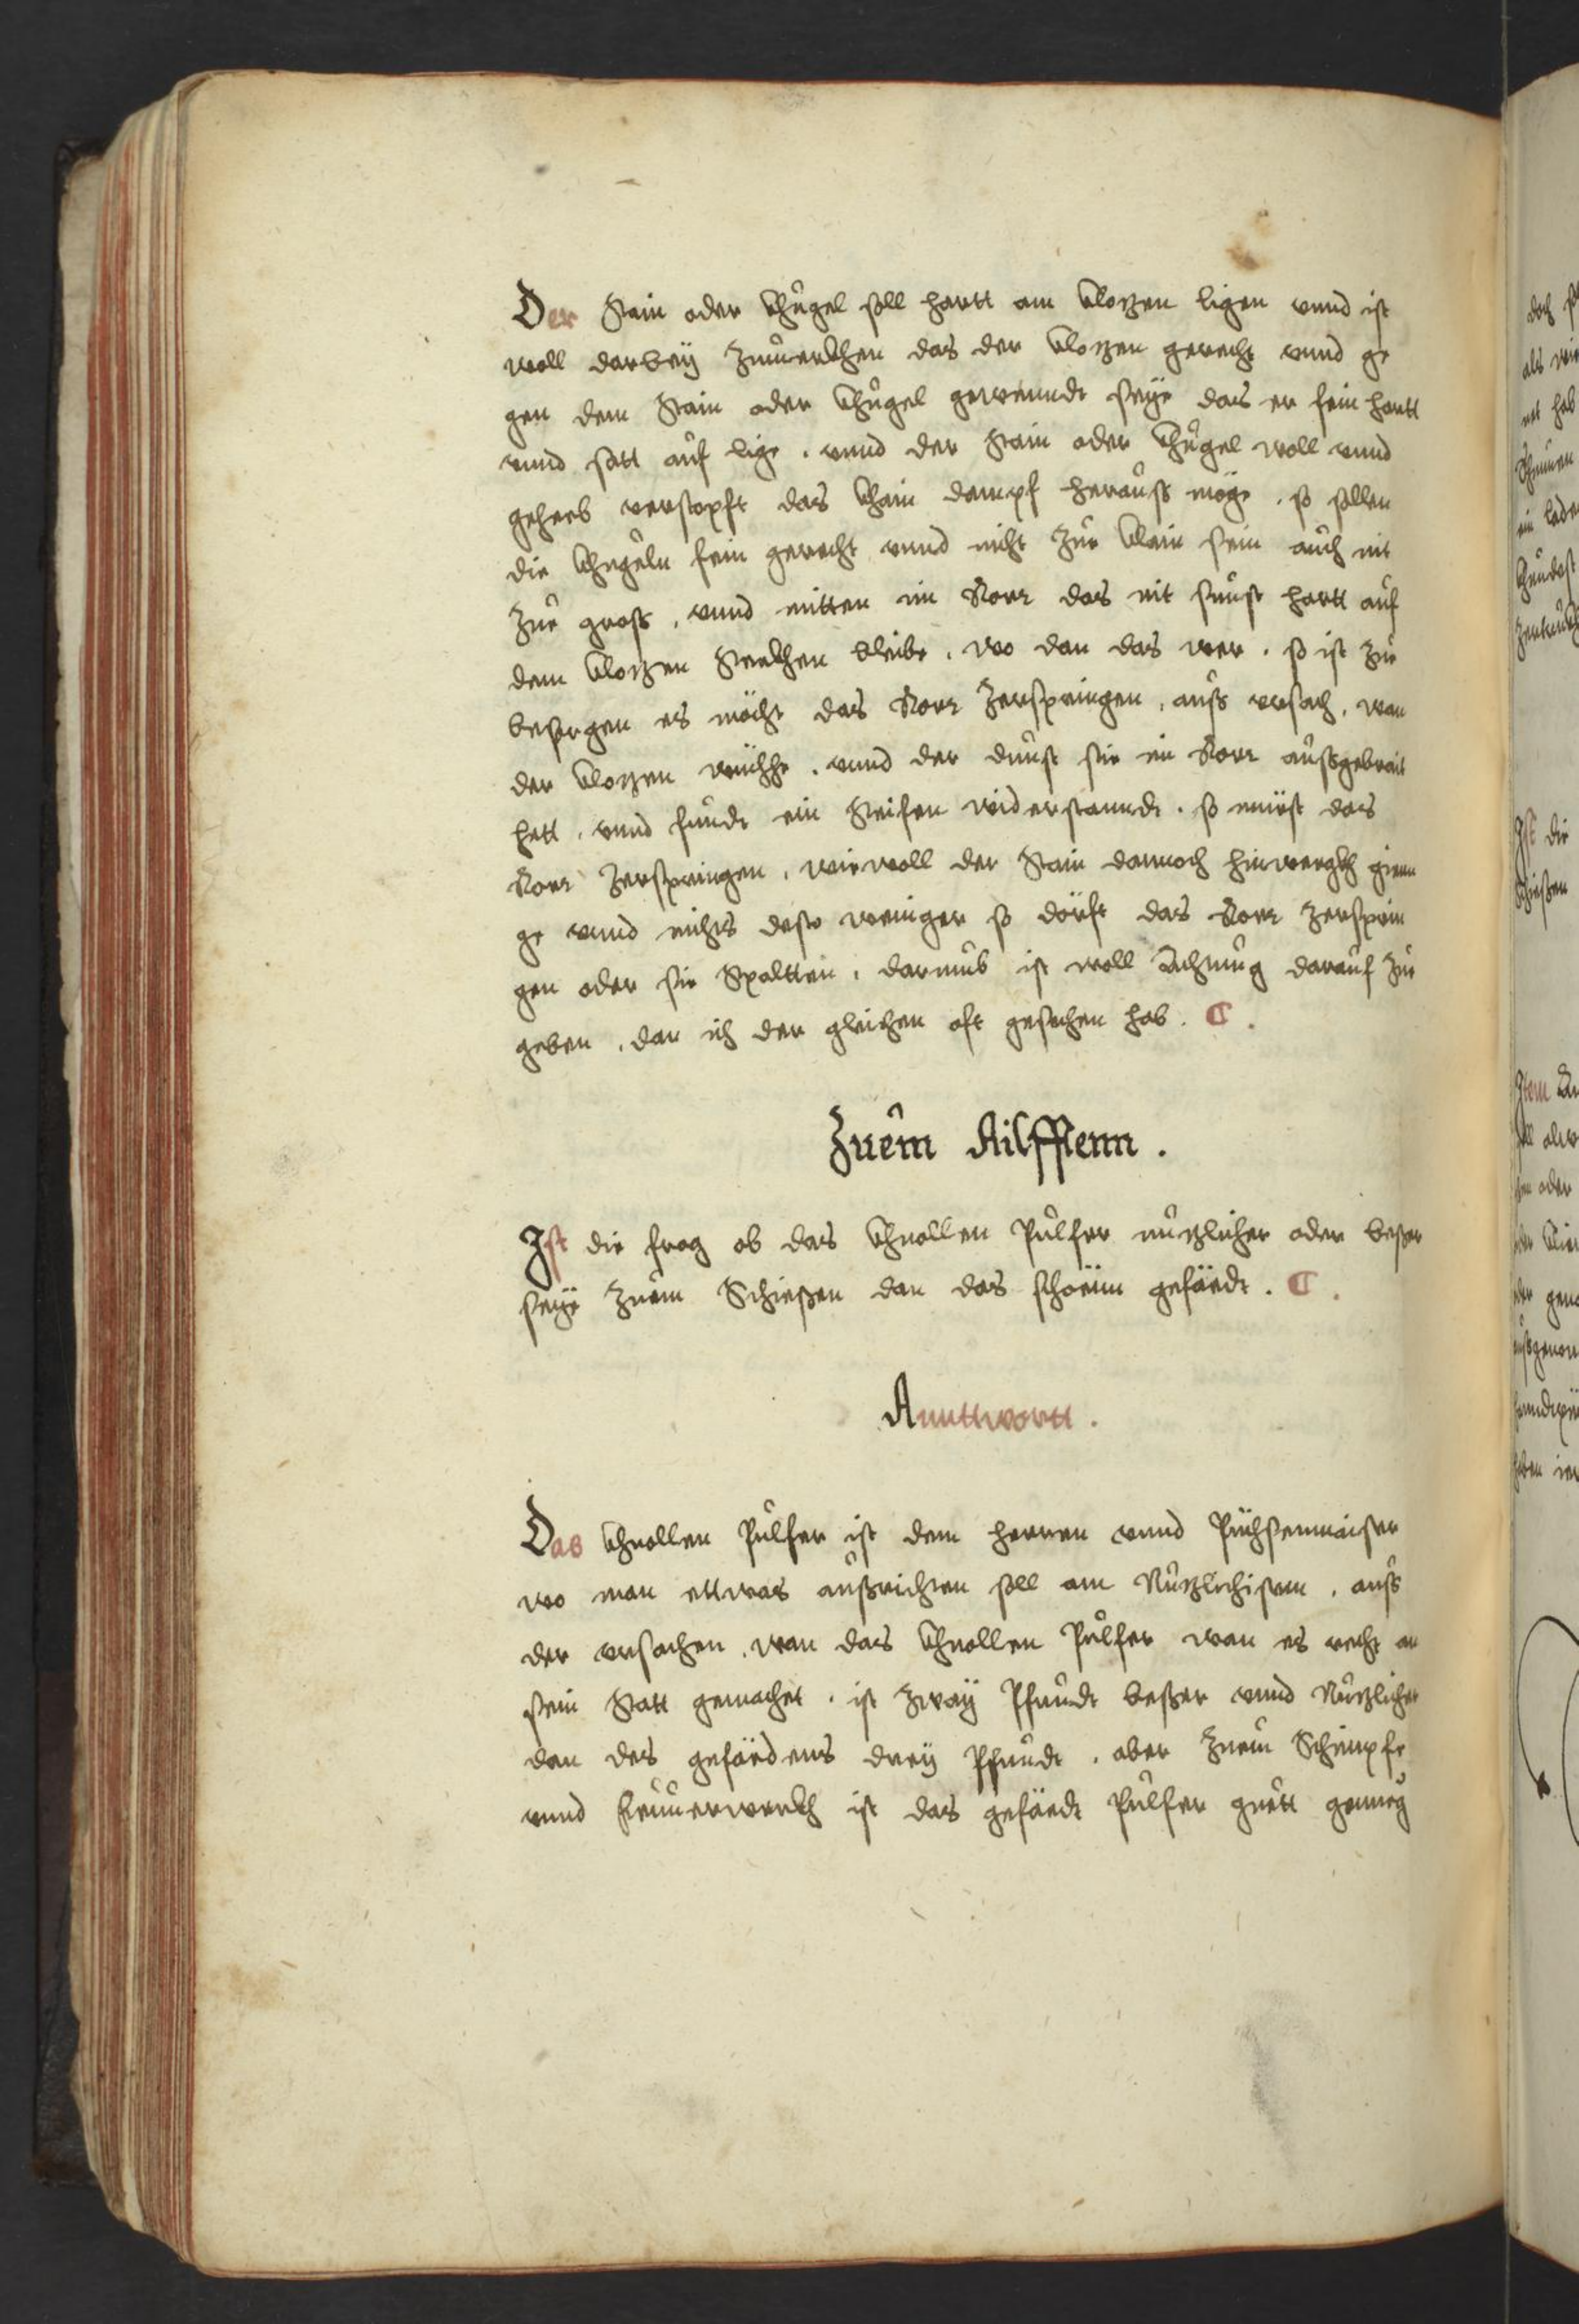 Der Stain oder Khugel soll hartt am klotzen ligen vnnd ist
woll darbeÿ Zumerkhen das der klotzen gerecht vnnd ge
gen dem Stain oder Khugel gewenndt seÿe das er fein hartt
vnnd satt auf lige . vnnd der Stain oder Khugel woll vnnd
geheb verstopft das khain dampf herauß möge . so sollen
die Khugeln fein gerecht vnnd nicht Zue klain sein auch nit
Zue groß . vnnd mitten im Rorr das nit sunst hartt auf
dem klotzen Stekhen bleibe . wo dan das wer . so ist Zue
besorgen es möcht das Rorr Zerspringen . auß vrsach . wan
der klotzen wichhe . vnnd der dunst sie im Rorr außgebrait
hett . vnnd fundt ein Steifen widerstanndt . so müest das
Rorr Zerspringen . wiewoll der Stain dannoch hinwegkh gienn
ge vnnd nichts desto weniger so dörft das Rorr Zersprin
gen oder sie Spaltten . darumb ist woll Achtung darauf Zue
geben . dan ich der gleichen oft gesehen hab . C .
Zuem Ailfften .
Ist die frag ob das Khnollen Pulfer nutzlicher oder besser
seÿe Zuem Schießen dan das schoenn gefäedt . C .
Annttwortt .
Das Khnollen Pulfer ist dem herren vnnd Püchsenmaister
wo man ettwas außrichten soll am Nutzlichisten . auß
der vrsachen . wan das Khnollen Pulfer wan es recht an
sein Statt gemachet . ist Zwaÿ Pfundt besser vnnd Nutzlicher
dan des gefäedens dreÿ Pfundt . aber Zuem Schimpfe
vnnd feuuerwerkh ist das gefäedt Pulfer guett genueg